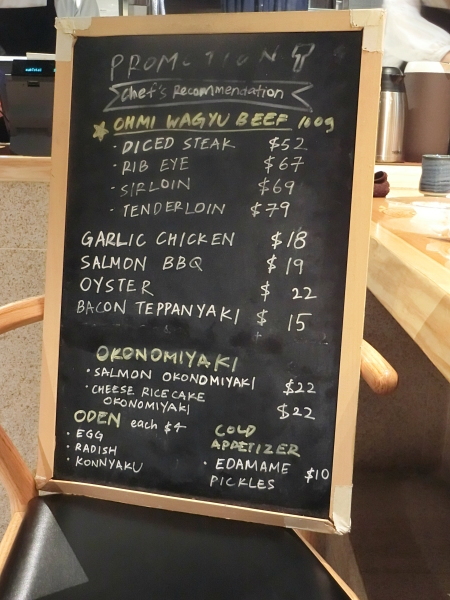 PROMOTION
Chef's Recommendation
★ OHMI WAGYU BEEF 100g
· DICED STEAK $52
· RIB EYE $67
· SIRLOIN $69
· TENDERLOIN $79
GARLIC CHICKEN $18
SALMON BBQ $19
OYSTER $ 22
BACON TEPPANYAKI $ 15
OKONOMIYAKI
· SALMON OKONOMIYAKI $22
· CHEESE RICECAKE
OKONOMIYAKI $22
ODEN each $4
· EGG
· RADISH
· KONNYAKU
COLD
APPETIZER
· EDAMAME $10
PICKLES